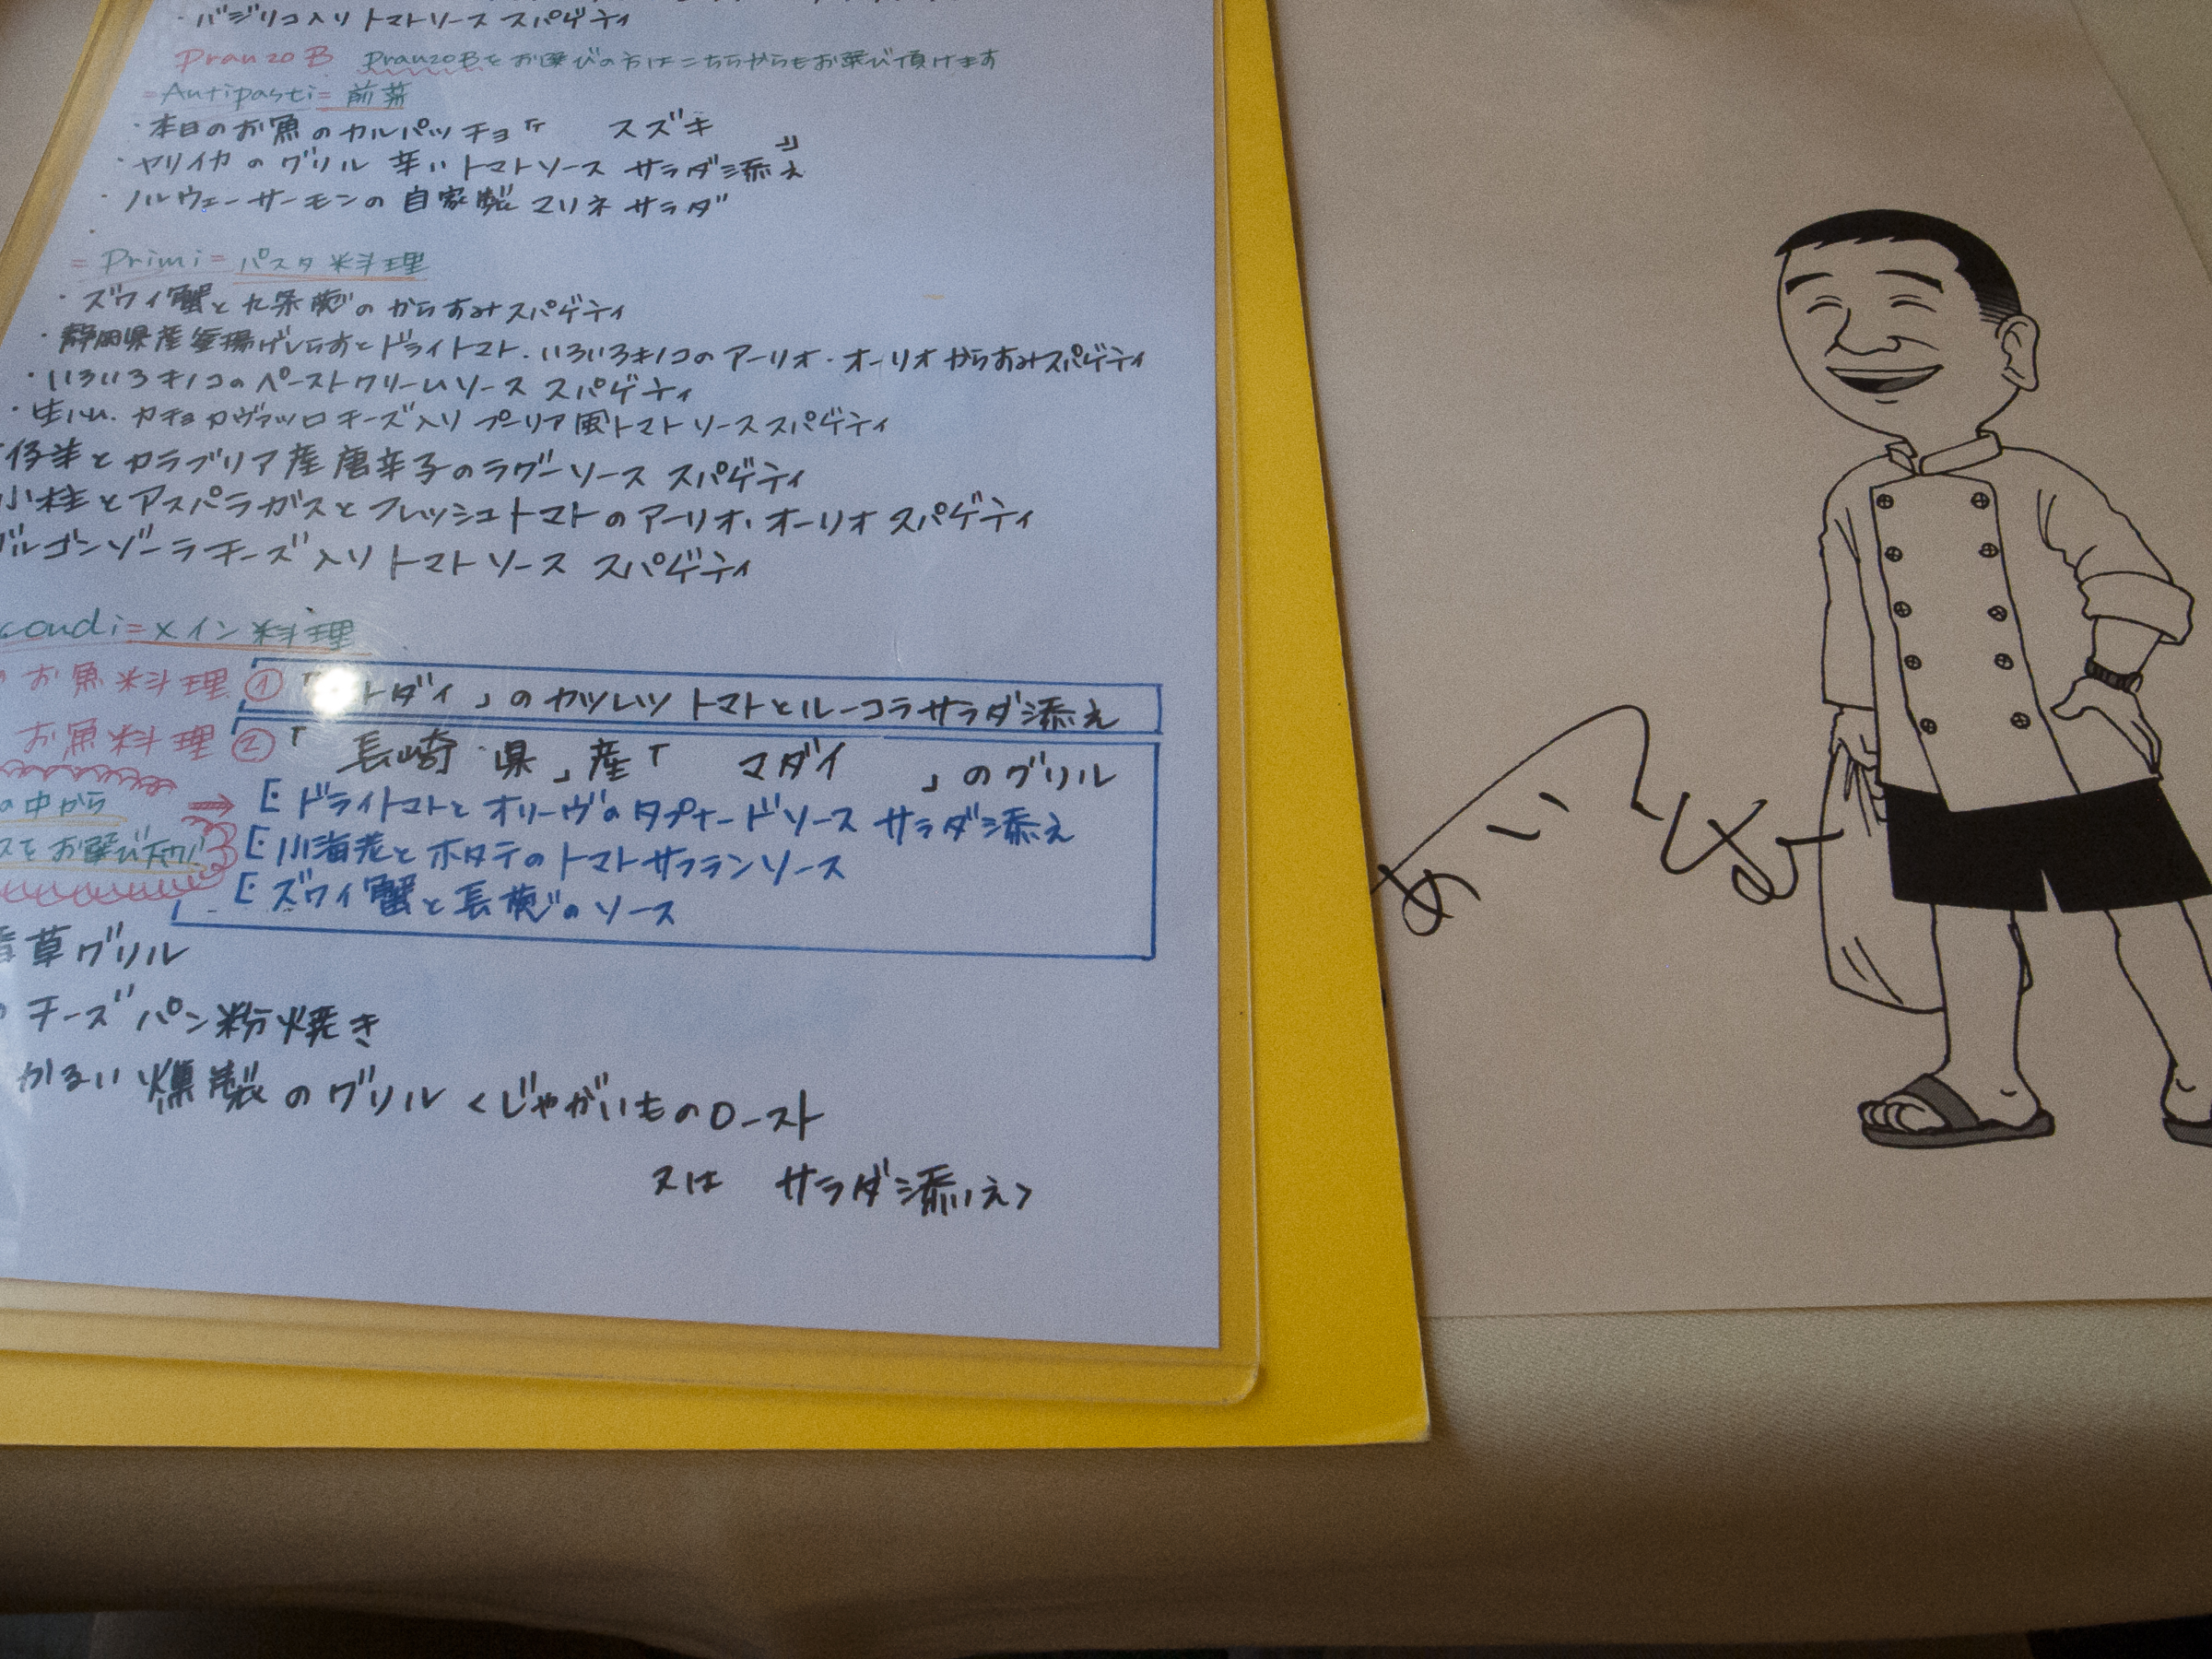 ・バジリコ入りトマトソース スパゲティ
Pranzo B PranzoBをお選びの方はこちらからもお選び頂けます
=Antipasti= 前菜
・本日のお魚のカルパッチョ『 スズキ 』
・ヤリイカのグリル 辛いトマトソース サラダ添え
・ノルウェーサーモンの自家製マリネサラダ
=Primi= パスタ料理
・ズワイ蟹と九条葱のからすみスパゲティ
・静岡県産釜揚げしらすとドライトマト・いろいろキノコのアーリオ・オーリオからすみスパゲティ
・いろいろキノコのペーストクリームソース スパゲティ
・生ハム・カチョカヴァッロチーズ入り プーリア風トマトソーススパゲティ
仔羊とカラブリア産唐辛子のラグーソース スパゲティ
小柱とアスパラガスとフレッシュトマトのアーリオ・オーリオ スパゲティ
ゴルゴンゾーラチーズ入りトマトソース スパゲティ
condi=メイン料理
お魚料理 ① 「 トダイ 」のカツレツ トマトとルーコラサラダ添え
お魚料理 ② 「 長崎 県 」産「 マダイ 」のグリル
の中から → [・ドライトマトとオリーヴのタプナードソース サラダ添え
スをお選び下さい [・小海老とホタテのトマトサフランソース
[・ズワイ蟹と長葱のソース
香草グリル
チーズパン粉焼き
かるい燻製のグリル <じゃがいものロースト
又は サラダ添え>